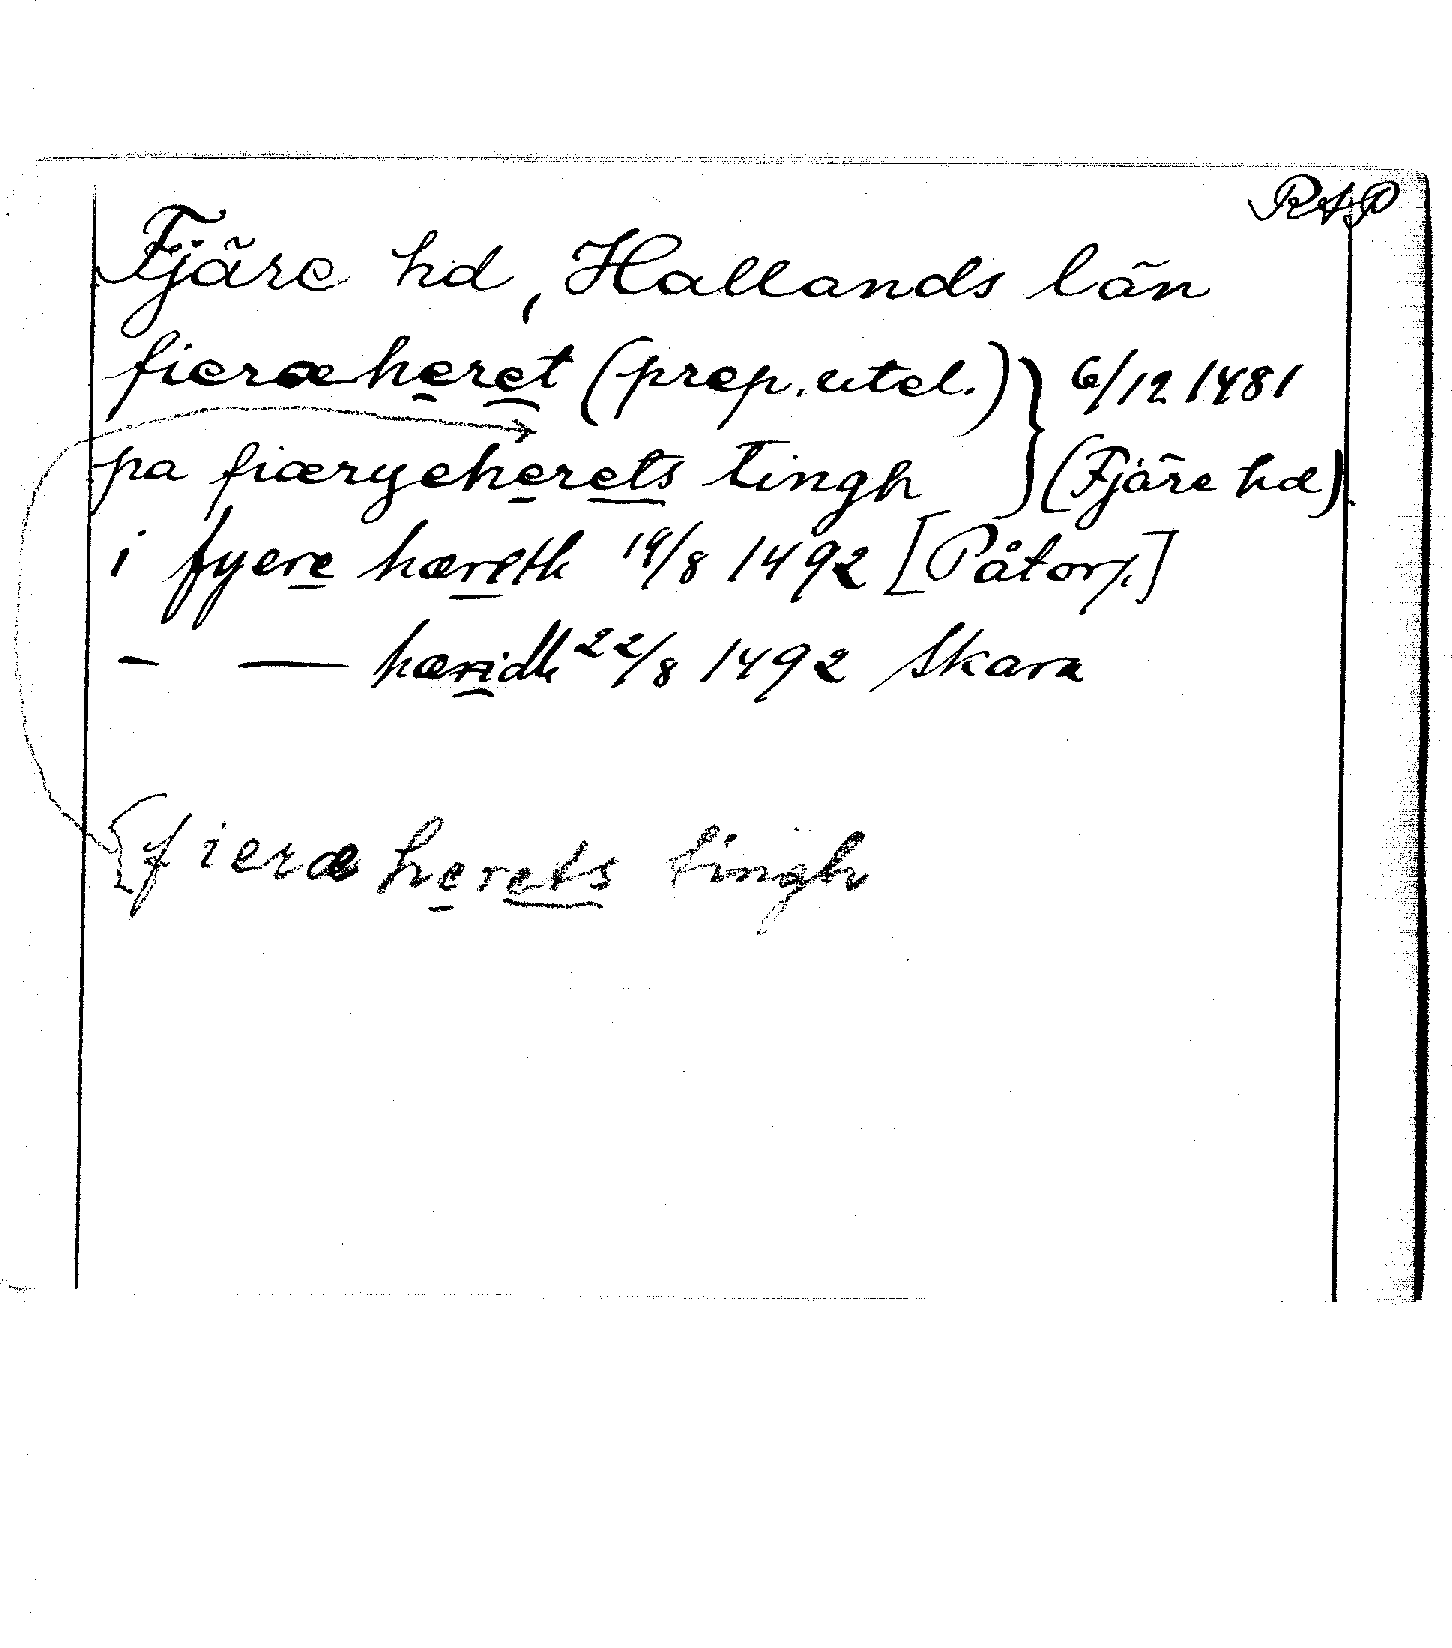 RAP
Fjäre hd, Hallands län
fieræheret (prep. utel.) } 6/12 1481
pa fiæryeherets tingh } (Fjäre hd)
i fyere hæreth 19/8 1492 [Påtorp.]
- — hæridh 22/8 1492 Skara
fieræherets tingh